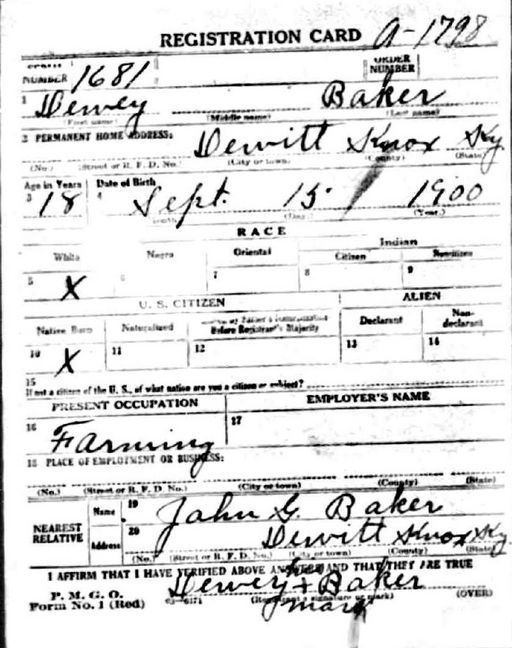 REGISTRATION CARD A-1798
NUMBER 1681 ORDER NUMBER
1 Dewey Baker
(First name) (Middle name) (Last name)
2 PERMANENT HOME ADDRESS: Dewitt Knox Ky
(No.) (Street or R. F. D. No.) (City or town) (County) (State)
Age in Years Date of Birth
3 18 4 Sept. 15 1900
(Day.) (Year.)
RACE
White Negro Oriental Indian
Citizen
5 X 6 7 8 9
U. S. CITIZEN ALIEN
Native Born Naturalized Before Registrant's Majority Declarant Non-declarant
10 X 11 12 13 14
15
If not a citizen of the U. S., of what nation are you a citizen or subject?
PRESENT OCCUPATION EMPLOYER'S NAME
16 Farming 17
18 PLACE OF EMPLOYMENT OR BUSINESS:
(No.) (Street or R. F. D. No.) (City or town) (County) (State)
NEAREST RELATIVE Name 19 John G. Baker
Address 20 Dewitt Knox Ky
(No.) (Street or R. F. D. No.) (City or town) (County) (State)
I AFFIRM THAT I HAVE VERIFIED ABOVE ANSWERS AND THAT THEY ARE TRUE
P. M. G. O. Dewey + Baker
Form No. 1 (Red) (Registrant's signature or mark) (OVER)
mark